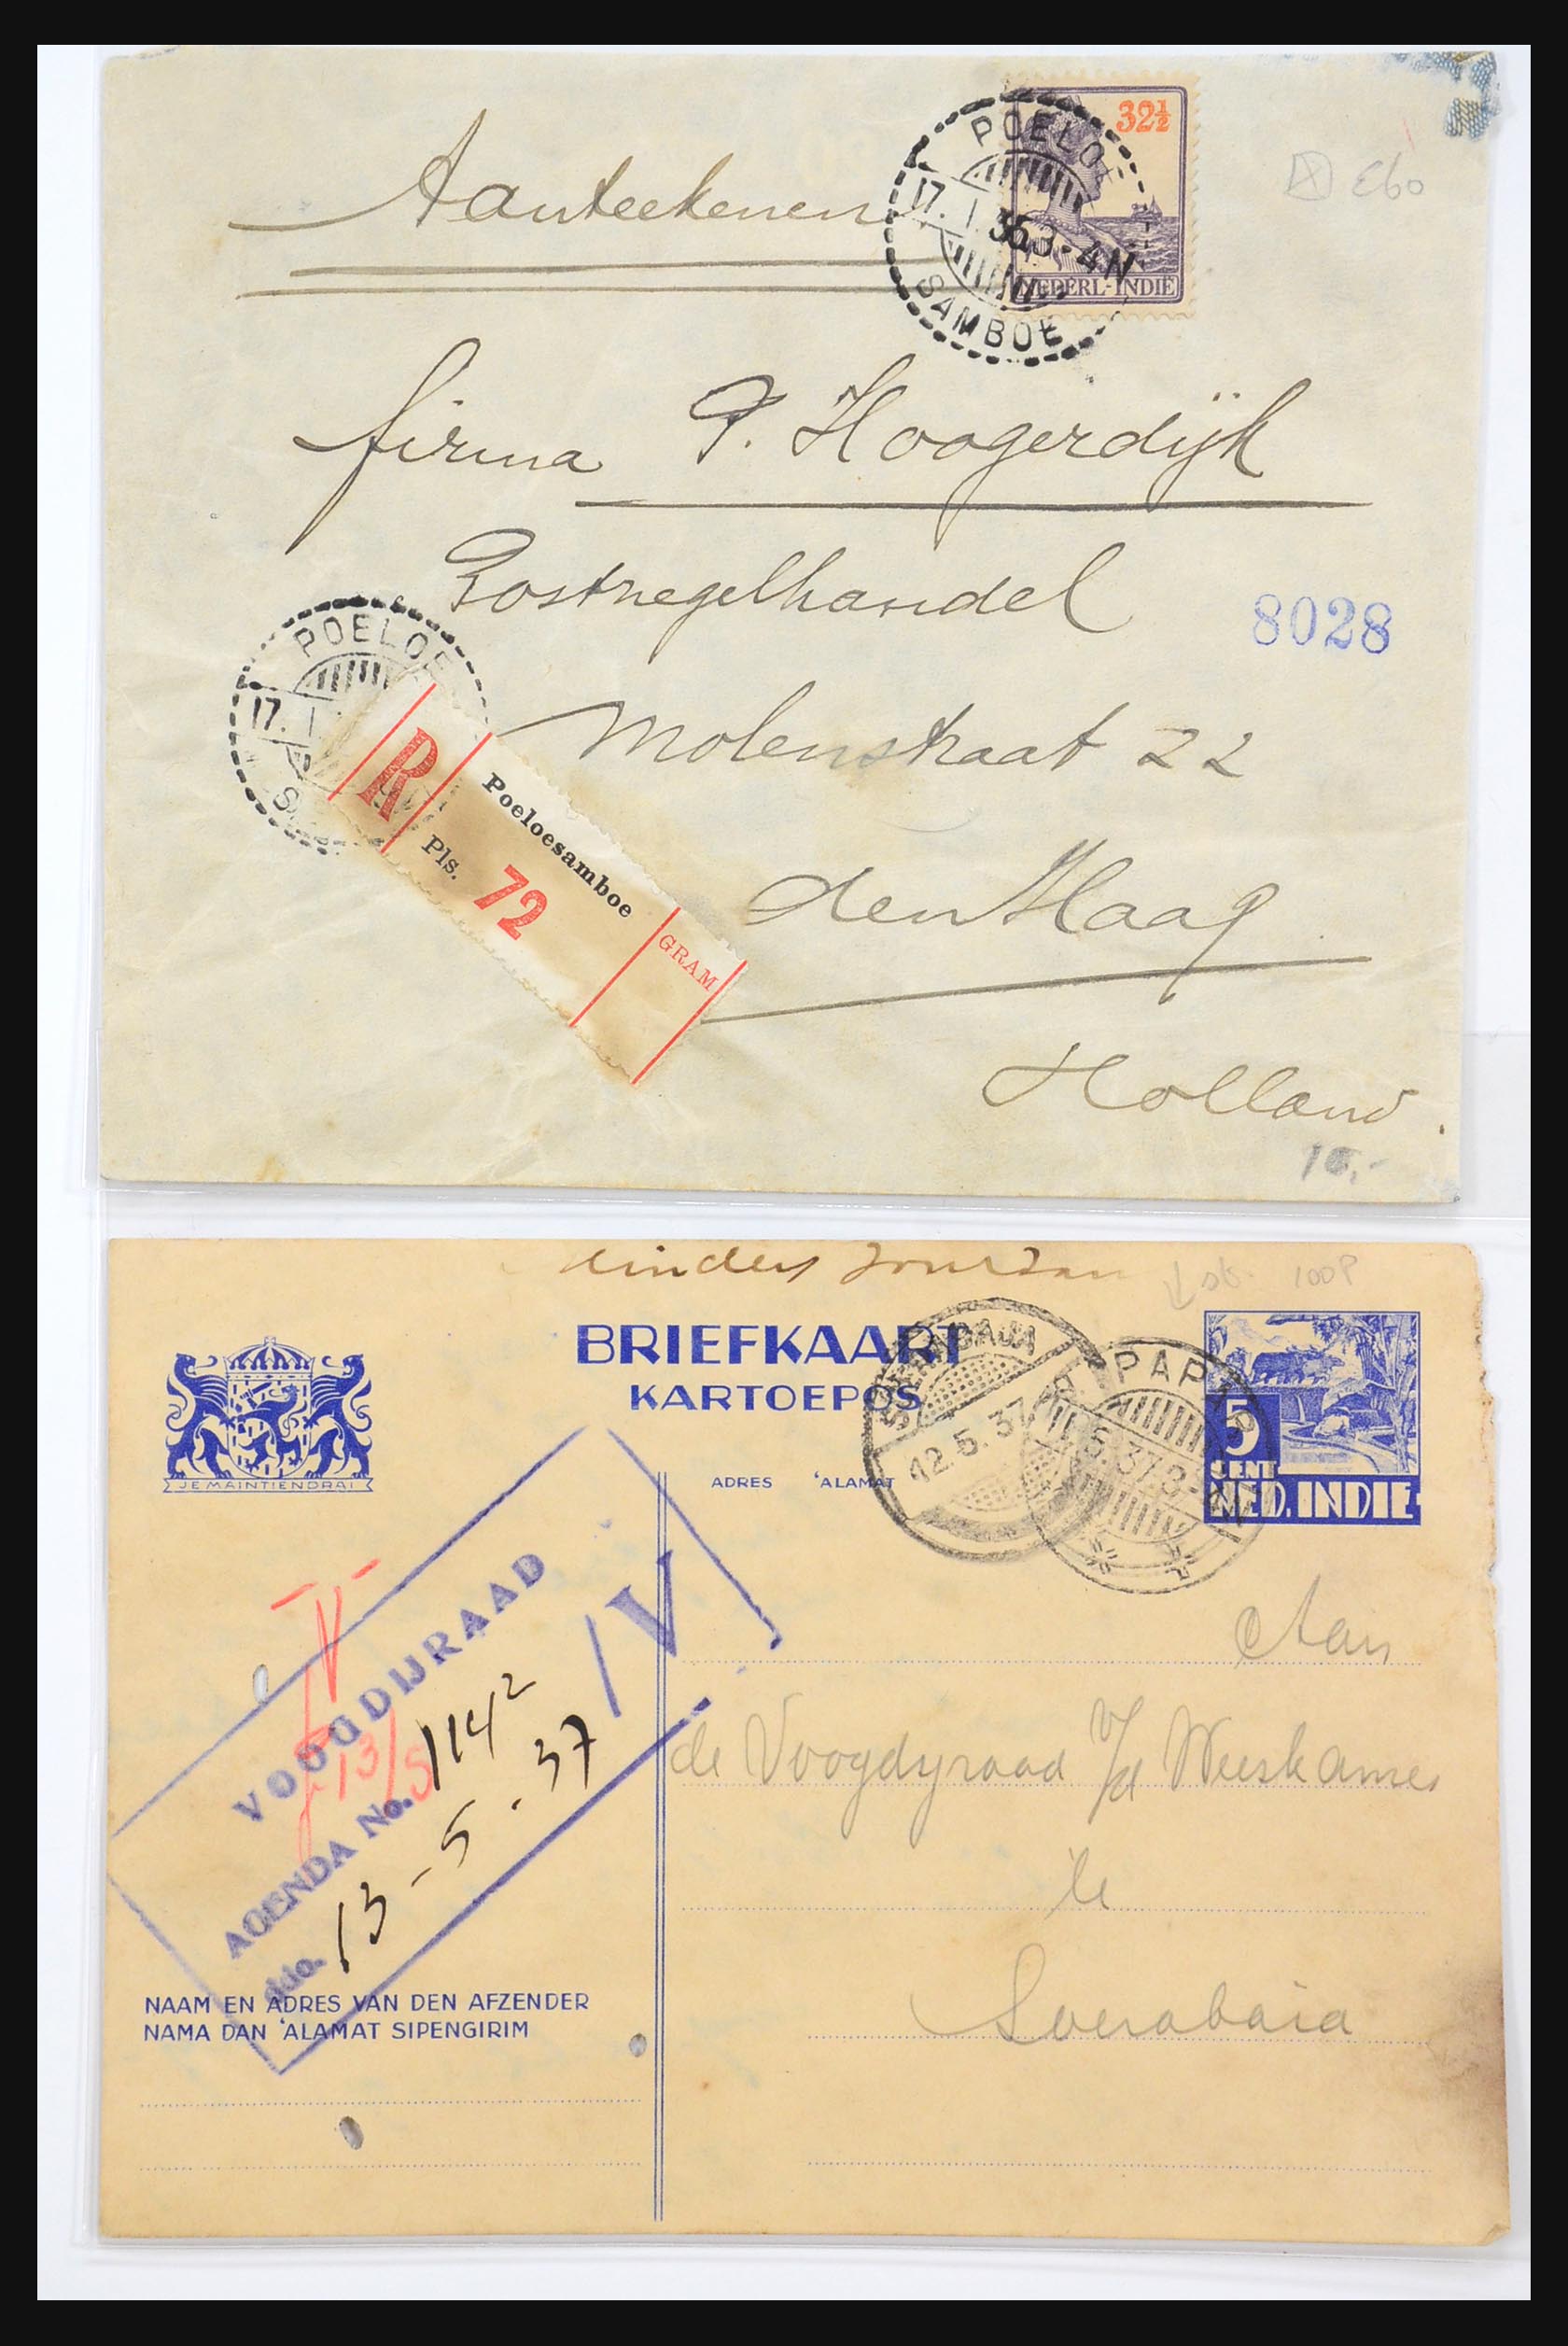 Aanteekenen
32½
NEDERL-INDIË
POELOE
17.1.35 3-4N
SAMBOE
E60
firma P. Hoogerdijk
Postzegelhandel
8028
Molenstraat 22
den Haag
Holland.
POELOE
17.1
R
Poeloesamboe
Pls.
72
GRAM
10,-
100P
BRIEFKAART
KARTOEPOS
ADRES 'ALAMAT
JE MAINTIENDRAI
SOERABAJA
12.5.37
PAPAR
11.5.37
5
CENT
NED. INDIE
VOOGDIJRAAD
AGENDA No. 114²
ddo. 13-5.37
/V
13/5
Aan
de Voogdyraad v/d Weeskamer
te
Soerabaia
NAAM EN ADRES VAN DEN AFZENDER
NAMA DAN 'ALAMAT SIPENGIRIM